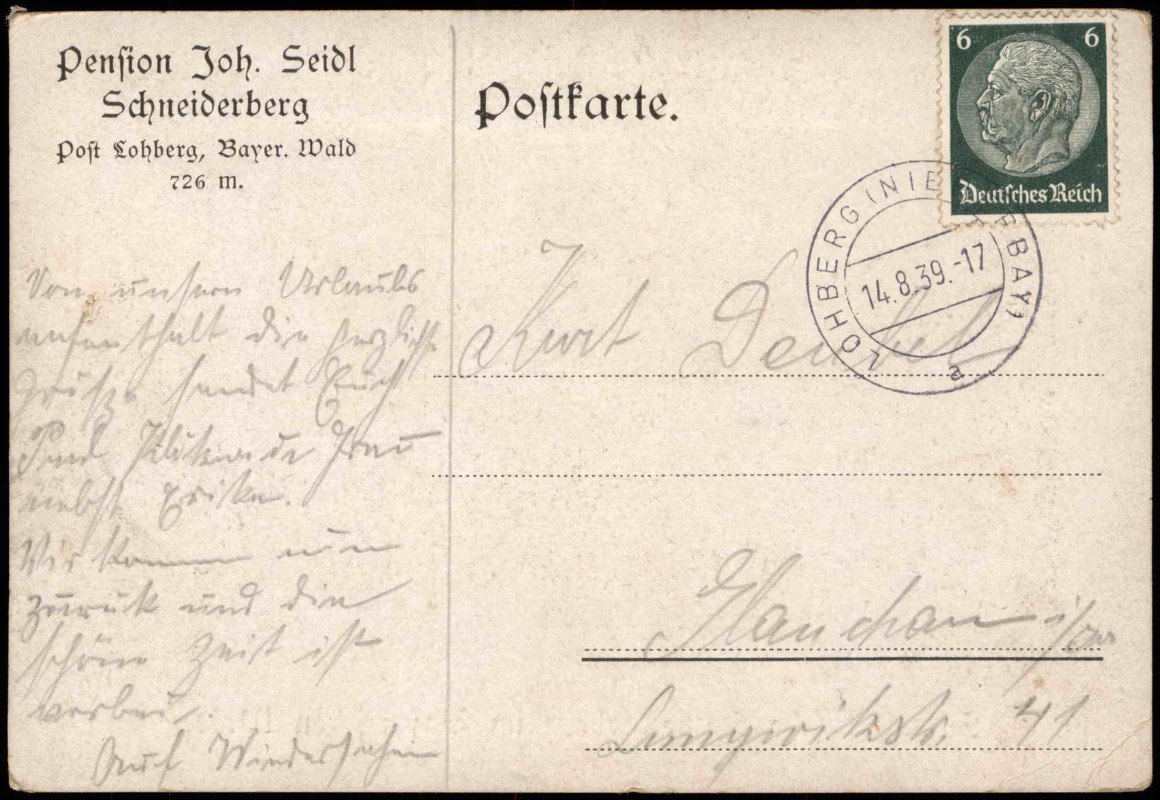 Pension Joh. Seidl
Schneiderberg
Post Lohberg, Bayer. Wald
726 m.
Postkarte.
6 6
Deutsches Reich
LOHBERG (NIEDERBAY)
14.8.39.-17
a
Von unsern Urlaubs
aufenthalt die herzlichst
Grüße sendet Euch
Paul Frau
nebst Erika.
Wir kommen nun
zurück und die
schöne Zeit ist
vorbei.
Auf Wiedersehen
Kurt
Glauchau i/Sa
41